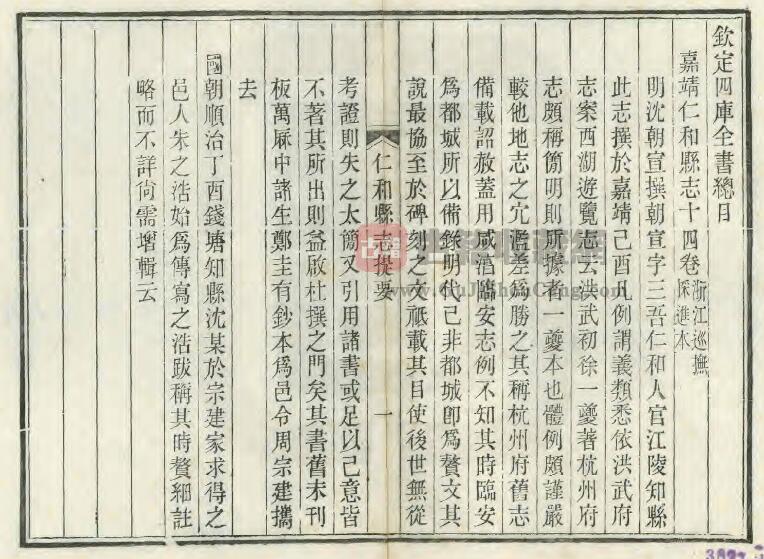 欽定四庫全書總目
嘉靖仁和縣志十四卷浙江巡撫採進本
明沈朝宣撰朝宣字三吾仁和人官江陵知縣
此志撰於嘉靖己酉凡例謂義類悉依洪武府
志案西湖遊覽志云洪武初徐一夔著杭州府
志頗稱簡明則所據者一夔本也體例頗謹嚴
較他地志之宂濫差爲勝之其稱杭州府舊志
備載詔赦葢用咸淳臨安志例不知其時臨安
爲都城所以備錄明代已非都城卽爲贅文其
說最協至於碑刻之文祇載其目使後世無從
仁和縣志提要 一
考證則失之太簡又引用諸書或足以己意皆
不著其所出則益啟杜撰之門矣其書舊未刊
板萬厤中諸生鄭圭有鈔本爲邑令周宗建攜
去
國朝順治丁酉錢塘知縣沈某於宗建家求得之
邑人朱之浩始爲傳寫之浩跋稱其時贅細註
略而不詳尙需增輯云
www.GuJiShuCang.com